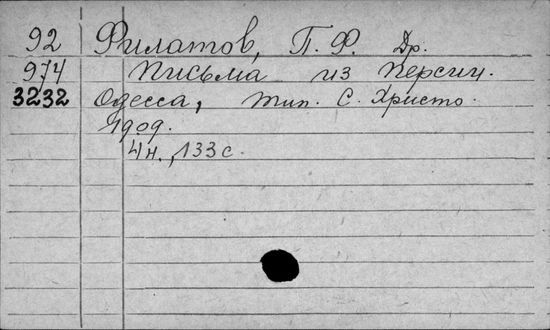 92 Филатов, П. Ф. Др.
974 Письма из Персии.
3232 Одесса, тип. С. Христо.
1909.
4н., 133 с.